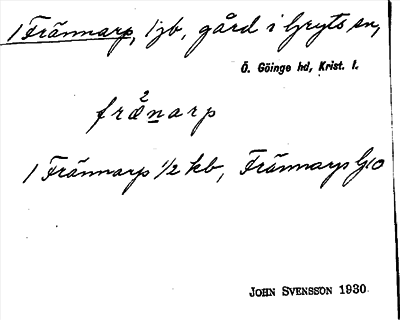 1 Frännarp, 1 jb, gård i Gryts sn,
Ö. Göinge hd, Krist. l.
fræ̌²n̲arp
1 Frännarp 1/2 kb, Frännarps G10
JOHN SVENSSON 1930.